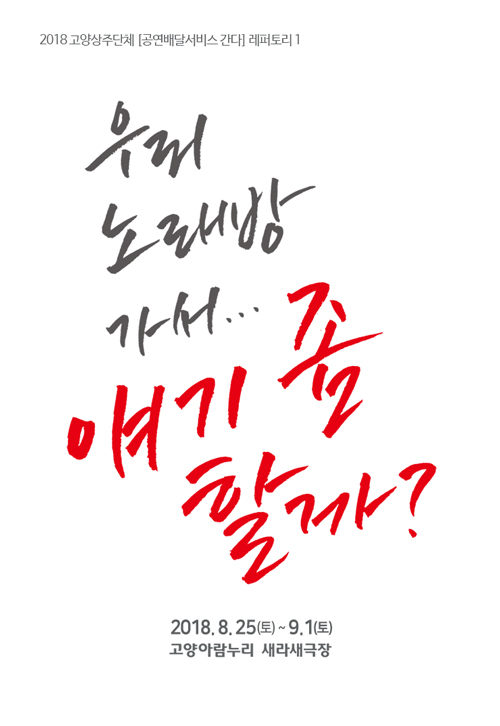 2018 고양상주단체 [공연배달서비스 간다] 레퍼토리 1
우리
노래방
가서...
얘기 좀
할까?
2018. 8. 25(토) ~ 9.1(토)
고양아람누리 새라새극장